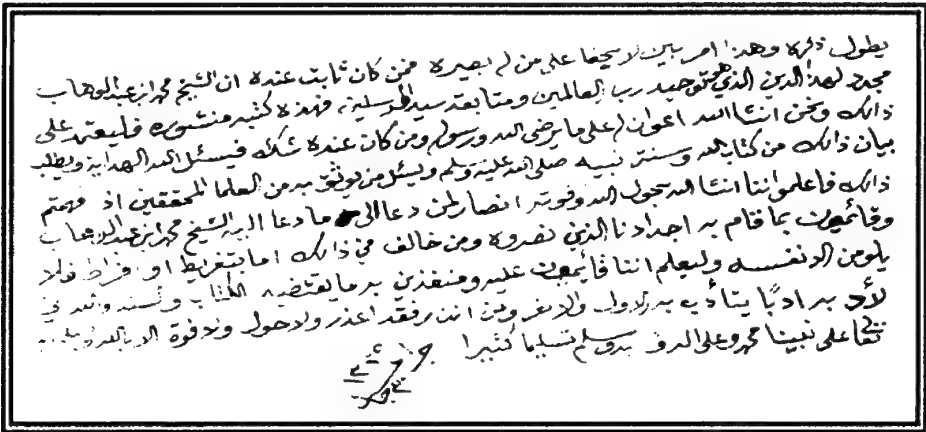 يطول ذكره وهذا امر بين لا يخفا على من لم بصيره فمن كان ثابت عنده ان الشيخ محمد ابن عبدالوهاب
مجدد لهذا الدين الذي هو توحيد رب العالمين ومتابعة سيد المرسلين فهذه كتبه منشوره فليعتمد على
ذالك ونحن انشا الله اعوان له على ما يرضى الله ورسوله ومن كان عنده شك فيسئل الله الهدايه ويطلب
بيان ذالك من كتاب الله وسنت نبيه صلى الله عليه وسلم ويسئل من يوثق به من العلما المحققين اذ فهمتم
ذالك فاعلموا اننا انشا الله بحول الله وقوته انصار لمن دعا الى ما دعا اليه الشيخ محمد ابن عبدالوهاب
وقائمون بما قام به اجدادنا الذين نصروه ومن خالف في ذالك اما بتفريط او افراط فلا
يلومن الا نفسه وليعلم اننا قائمون عليه ومنفذين به ما يقتضيه الكتاب والسنه
لأدبه ادبًا يتأدب به الاول والاخر ومن انذر فقد اعذر ولا حول ولا قوة الا بالله
على نبينا محمد وعلى اله وسلم تسليما كثيرا